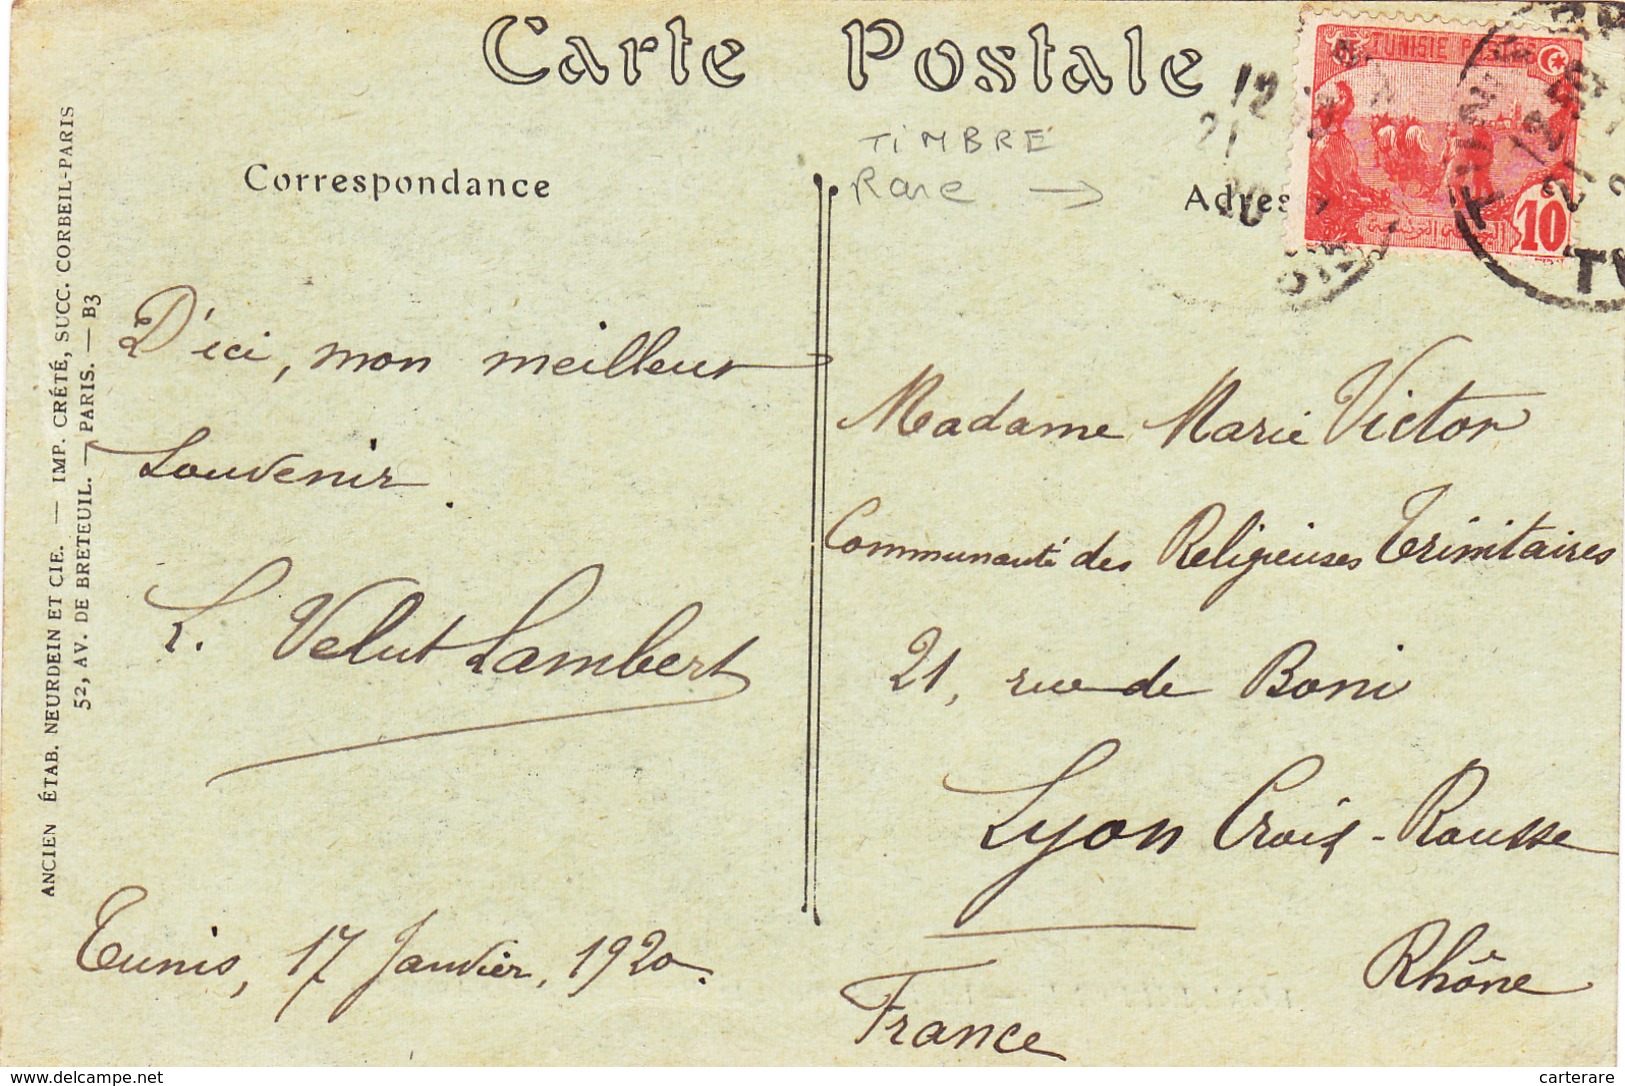 Carte Postale
TIMBRE
Rare →
Correspondance
Adres
TUNISIE POSTES
10
12
21
TUNIS
ANCIEN ÉTAB. NEURDEIN ET CIE. — IMP. CRÉTÉ, SUCC. CORBEIL-PARIS
52, AV. DE BRETEUIL. — PARIS. — B3
D'ici, mon meilleur
souvenir.
L. Velut Lambert
Tunis, 17 Janvier, 1920.
Madame Marie Victor
Communauté des Religieuses Trinitaires
21, rue de Bony
Lyon Croix-Rousse
Rhône
France
www.delcampe.net
carterare